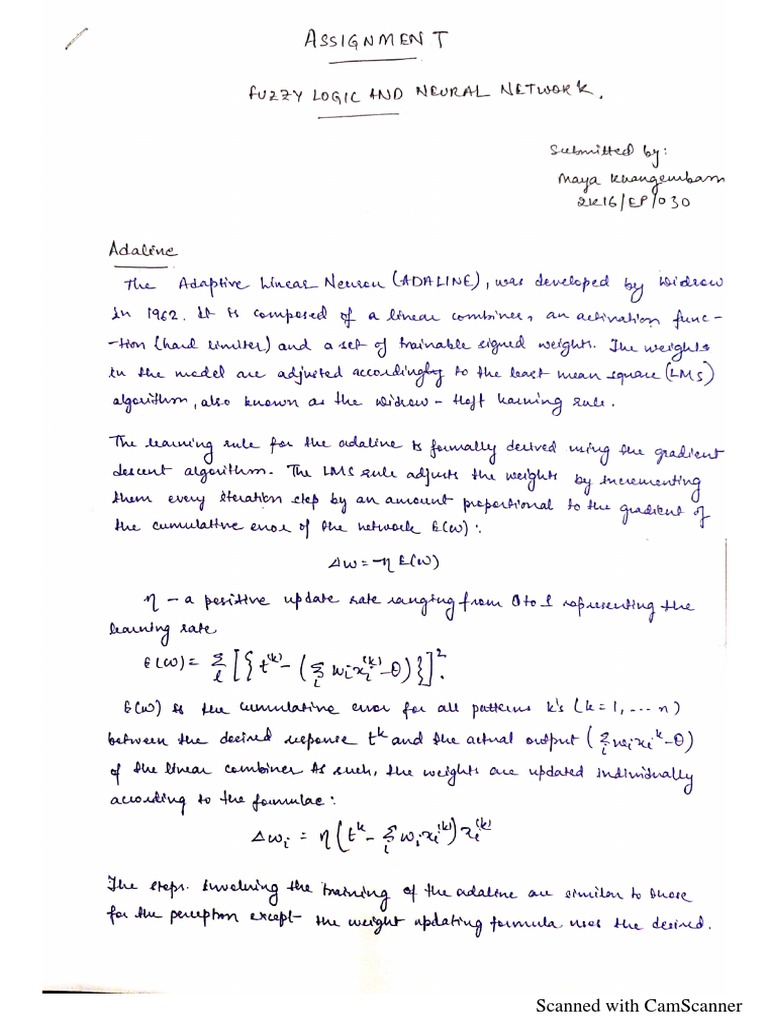 ASSIGNMENT
FUZZY LOGIC AND NEURAL NETWORK.
Submitted by:
Maya Khangembam
2K16/EP/030
Adaline
The Adaptive Linear Neuron (ADALINE), was developed by Widrow
in 1962. It is composed of a linear combiner, an activation func-
-tion (hard limiter) and a set of trainable signed weights. The weights
in the model are adjusted accordingly to the least mean square (LMS)
algorithm, also known as the Widrow-Hoff learning rule.
The learning rule for the adaline is formally derived using the gradient
descent algorithm. The LMS rule adjusts the weights by incrementing
them every iteration step by an amount proportional to the gradient of
the cumulative error of the network E(w):
Δw = -η E(w)
η - a positive update rate ranging from 0 to 1 representing the
learning rate
E(w) = Σ_l [{t^(k) - (Σ_i w_i x_i^(k) - θ)}]^2.
E(w) is the cumulative error for all patterns k's (k=1, ... n)
between the desired response t^k and the actual output (Σ_i w_i x_i^k - θ)
of the linear combiner As such, the weights are updated individually
according to the formulae:
Δw_i = η (t^k - Σ_i w_i x_i^(k)) x_i^(k)
The steps. involving the training of the adaline are similar to those
for the perceptron except - the weight updating formula uses the desired.
Scanned with CamScanner